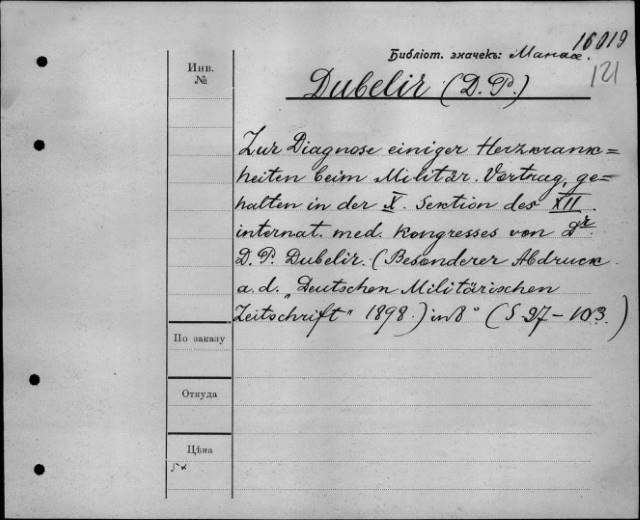 16019
Библіот. значекъ:
121
Инв.
№
Dubelir (D. P.)
Zur Diagnose einiger Herzkrank=
heiten beim Militär. Vortrag, ge=
halten in der X. Sektion des XII.
internat. med. Kongresses von Dr.
D. P. Dubelir. (Besonderer Abdruck
a. d. „Deutschen Militärischen
Zeitschrift" 1898.) in 8° (S 97-103.)
По заказу
Откуда
Цѣна